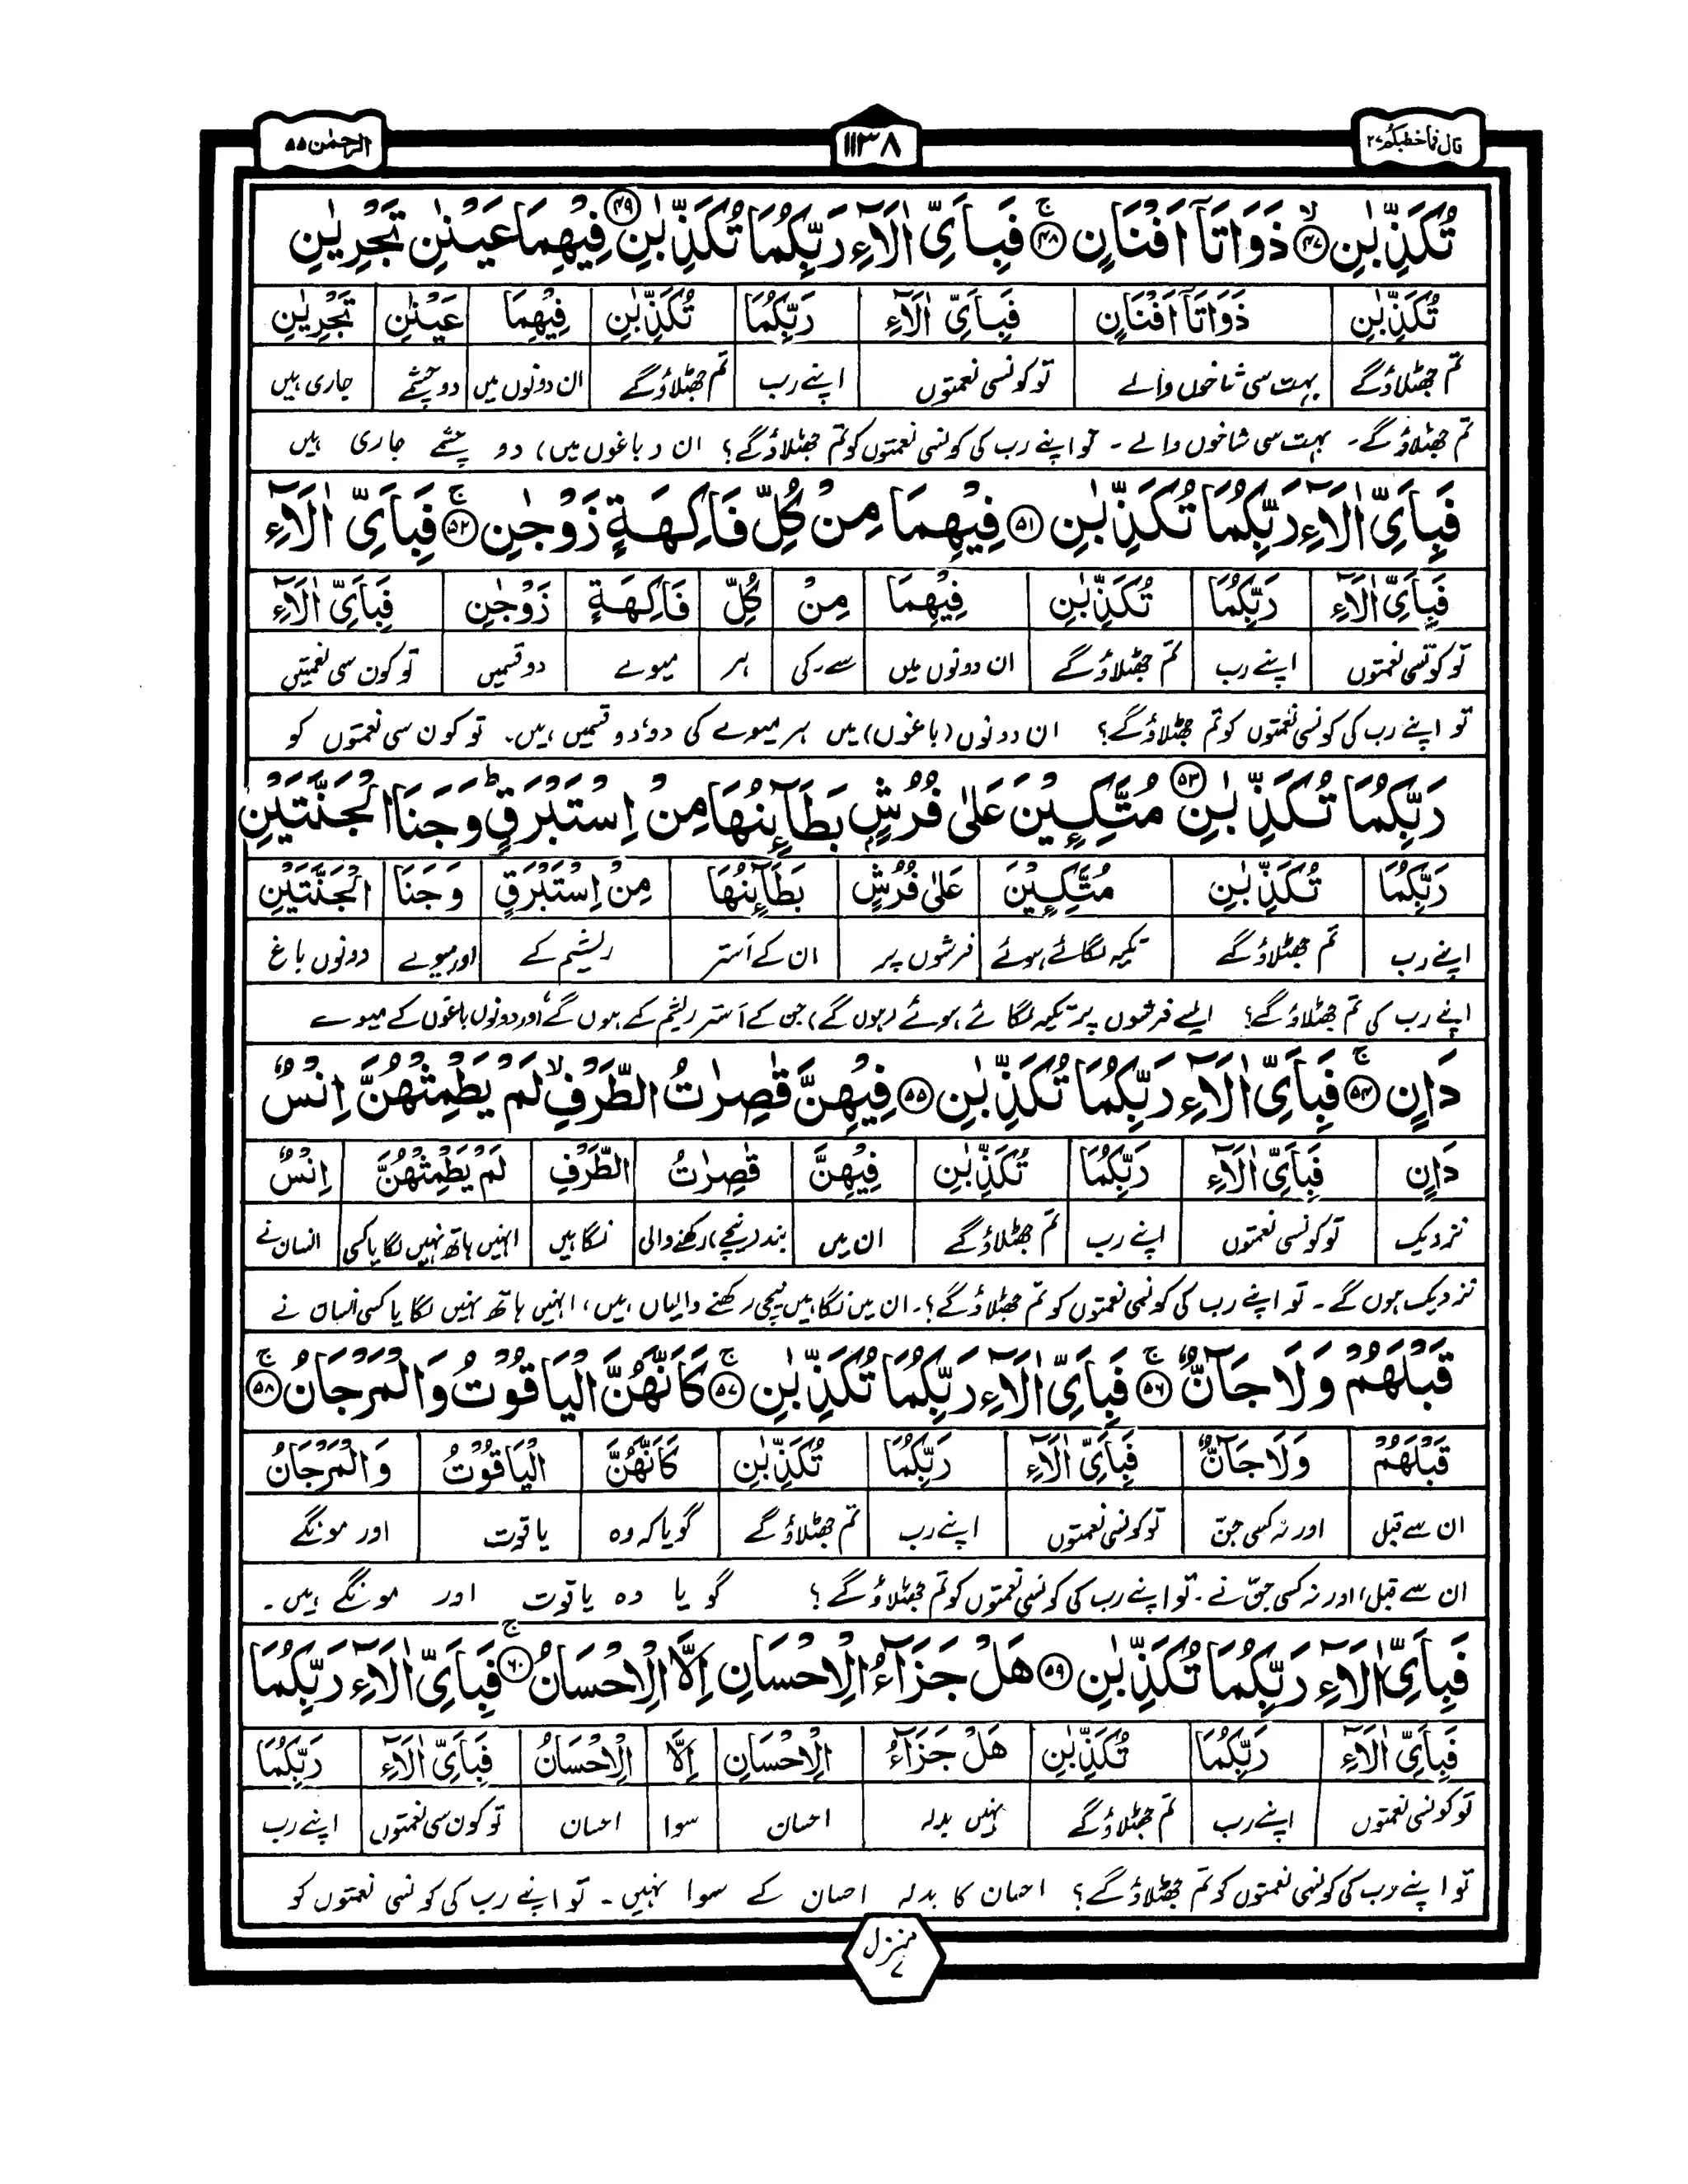 قال فما خطبکم ۲۷
۱۱۳۸
الرحمٰن ۵۵
تُكَذِّبٰنِ ﴿۴۷﴾ ذَوَاتَآ اَفْنَانٍ ﴿۴۸﴾ فَبِاَيِّ اٰلَآءِ رَبِّكُمَا تُكَذِّبٰنِ ﴿۴۹﴾ فِيْهِمَا عَيْنٰنِ تَجْرِيٰنِ
تُكَذِّبٰنِ ذَوَاتَآ اَفْنَانٍ فَبِاَيِّ اٰلَآءِ رَبِّكُمَا تُكَذِّبٰنِ فِيْهِمَا عَيْنٰنِ تَجْرِيٰنِ
تم جھٹلاؤگے بہت سی شاخوں والے تو کونسی نعمتوں اپنے رب تم جھٹلاؤگے ان دونوں میں دو چشمے جاری ہیں
تم جھٹلاؤ گے۔ بہت سی شاخوں والے ۔ تو اپنے رب کی کونسی نعمتوں کو تم جھٹلاؤ گے؟ ان (باغوں میں) دو چشمے جاری ہیں
فَبِاَيِّ اٰلَآءِ رَبِّكُمَا تُكَذِّبٰنِ ﴿۵۱﴾ فِيْهِمَا مِنْ كُلِّ فَاكِهَةٍ زَوْجٰنِ ﴿۵۲﴾ فَبِاَيِّ اٰلَآءِ
فَبِاَيِّ اٰلَآءِ رَبِّكُمَا تُكَذِّبٰنِ فِيْهِمَا مِنْ كُلِّ فَاكِهَةٍ زَوْجٰنِ فَبِاَيِّ اٰلَآءِ
تو کونسی نعمتوں اپنے رب تم جھٹلاؤگے ان دونوں میں سے۔کی ہر میوے دو قسمیں تو کون سی نعمتیں
تو اپنے رب کی کونسی نعمتوں کو تم جھٹلاؤ گے؟ ان دونوں (باغوں) میں ہر میوے کی دو، دو قسمیں ہیں۔ تو کون سی نعمتوں کو
رَبِّكُمَا تُكَذِّبٰنِ ﴿۵۳﴾ مُتَّكِـِٕيْنَ عَلٰى فُرُشٍۭ بَطَآىِٕنُهَا مِنْ اِسْتَبْرَقٍ ؕ وَجَنَا الْجَنَّتَيْنِ
رَبِّكُمَا تُكَذِّبٰنِ مُتَّكِـِٕيْنَ عَلٰى فُرُشٍ بَطَآىِٕنُهَا مِنْ اِسْتَبْرَقٍ وَجَنَا الْجَنَّتَيْنِ
اپنے رب تم جھٹلاؤ گے تکیہ لگائے ہوئے فرشوں پر ان کے اَستر ریشم کے اور میوے دونوں باغ
اپنے رب کی تم جھٹلاؤ گے؟ ایسے فرشوں پر تکیہ لگائے ہوئے (ہوں گے) جن کے اَستر ریشم کے ہوں گے، اور دونوں باغوں کے میوے
دَانٍ ﴿۵۴﴾ فَبِاَيِّ اٰلَآءِ رَبِّكُمَا تُكَذِّبٰنِ ﴿۵۵﴾ فِيْهِنَّ قٰصِرٰتُ الطَّرْفِ ۙ لَمْ يَطْمِثْهُنَّ اِنْسٌ
دَانٍ فَبِاَيِّ اٰلَآءِ رَبِّكُمَا تُكَذِّبٰنِ فِيْهِنَّ قٰصِرٰتُ الطَّرْفِ لَمْ يَطْمِثْهُنَّ اِنْسٌ
نزدیک تو کونسی نعمتوں اپنے رب تم جھٹلاؤ گے ان میں بند (نیچے) رکھنے والی نگاہیں انہیں ہاتھ نہیں لگایا کسی انسان نے
نزدیک ہوں گے ۔ تو اپنے رب کی کونسی نعمتوں کو تم جھٹلاؤ گے؟۔ ان میں نگاہیں نیچی رکھنے والیاں ہیں، انہیں ہاتھ نہیں لگایا کسی انسان نے
قَبْلَهُمْ وَلَا جَآنٌّ ﴿۵۶﴾ فَبِاَيِّ اٰلَآءِ رَبِّكُمَا تُكَذِّبٰنِ ﴿۵۷﴾ كَاَنَّهُنَّ الْيَاقُوْتُ وَالْمَرْجَانُ ﴿۵۸﴾
قَبْلَهُمْ وَلَا جَآنٌّ فَبِاَيِّ اٰلَآءِ رَبِّكُمَا تُكَذِّبٰنِ كَاَنَّهُنَّ الْيَاقُوْتُ وَالْمَرْجَانُ
ان سے قبل اور نہ کسی جن تو کونسی نعمتوں اپنے رب تم جھٹلاؤ گے گویا کہ وہ یاقوت اور مونگے
ان سے قبل، اور نہ کسی جن نے ۔ تو اپنے رب کی کونسی نعمتوں کو تم جھٹلاؤ گے؟ گویا وہ یاقوت اور مونگے ہیں۔
فَبِاَيِّ اٰلَآءِ رَبِّكُمَا تُكَذِّبٰنِ ﴿۵۹﴾ هَلْ جَزَآءُ الْاِحْسَانِ اِلَّا الْاِحْسَانُ ﴿۶۰﴾ فَبِاَيِّ اٰلَآءِ رَبِّكُمَا
فَبِاَيِّ اٰلَآءِ رَبِّكُمَا تُكَذِّبٰنِ هَلْ جَزَآءُ الْاِحْسَانِ اِلَّا الْاِحْسَانُ فَبِاَيِّ اٰلَآءِ رَبِّكُمَا
تو کونسی نعمتوں اپنے رب تم جھٹلاؤ گے نہیں بدلہ احسان سوا احسان تو کون سی نعمتوں اپنے رب
تو اپنے رب کی کونسی نعمتوں کو تم جھٹلاؤ گے؟ احسان کا بدلہ احسان کے سوا نہیں ۔ تو اپنے رب کی کونسی نعمتوں کو
منزل ۷